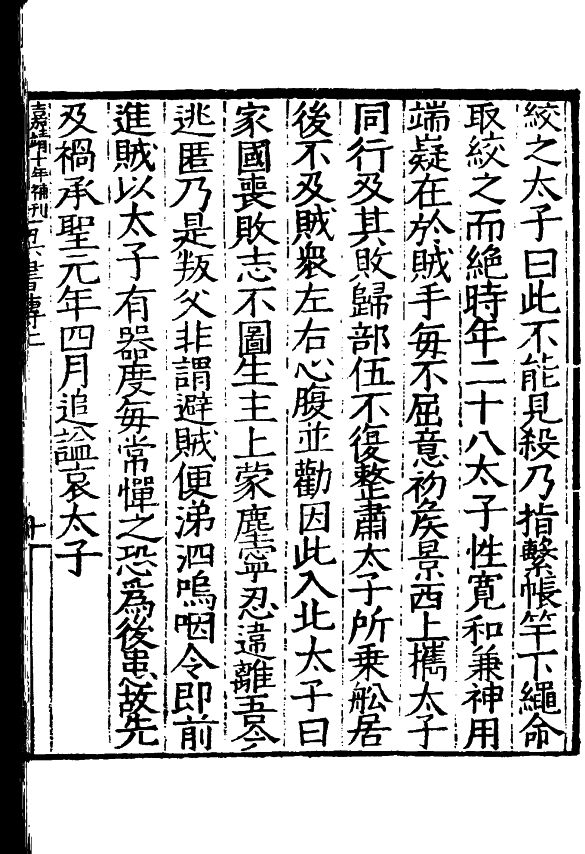 絞之太子曰此不能見殺乃指繫帳竿下繩命
取絞之而絕時年二十八太子性寬和兼神用
端嶷在於賊手每不屈意初侯景西上攜太子
同行及其敗歸部伍不復整肅太子所乗舩居
後不及賊衆左右心腹並勸因此入北太子曰
家國喪敗志不圖生主上蒙塵寧忍違離吾今
逃匿乃是叛父非謂避賊便涕泗嗚咽令即前
進賊以太子有器度每常憚之恐為後患故先
及禍承聖元年四月追謚哀太子
嘉靖十年補刊